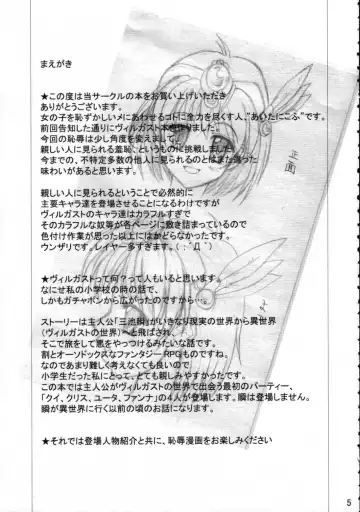 まえがき
★この度は当サークルの本をお買い上げいただき
ありがとうございます。
女の子を恥ずかしいメにあわせるコトに全力を尽くす人、"あいたにこふ"です。
前回告知した通りにヴィルガスト本作りました。
今回の恥辱は少し角度を変えまして、
親しい人に見られる羞恥、というものに挑戦しました。
今までの、不特定多数の他人に見られるのとはまた違った
味わいがあると思います。
親しい人に見られるということで必然的に
主要キャラ達を登場させることになるわけですが
ヴィルガストのキャラ達はカラフルすぎで
そのカラフルな奴等が各ページに敷き詰まっているので
色付け作業が思った以上にはかどらなかったです。
ウンザリです。レイヤー多すぎます。(;´Д｀)
★ヴィルガストって何？って人もいると思います。
なにせ私の小学校の時の話で、
しかもガチャポンから広がったのですから…。
ストーリーは主人公「三池瞬」がいきなり現実の世界から異世界
(ヴィルガストの世界)へと飛ばされ、
そこで旅をして悪をやっつけるみたいな話です。
割とオーソドックスなファンタジーRPGものですね。
なのであまり難しく考えなくても良いので、
小学生だった私にとって、とても親しみやすかったです。
この本では主人公がヴィルガストの世界で出会う最初のパーティー、
「クイ、クリス、ユータ、ファンナ」の4人が登場します。瞬は登場しません。
瞬が異世界に行く以前の頃のお話になります。
★それでは登場人物紹介と共に、恥辱漫画をお楽しみください
正面
5